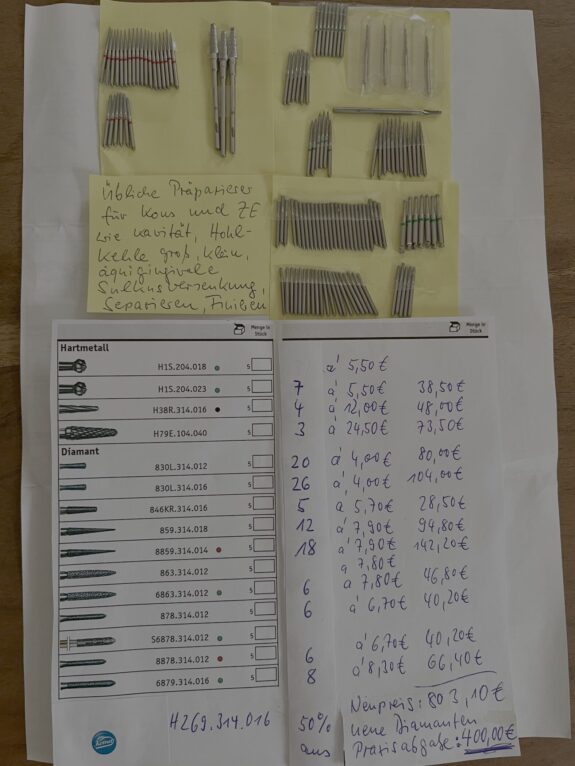 Übliche Präparierer
für Kons und ZE
wie Kavität, Hohl-
Kehle groß, klein,
äquigingivale
Sulkusversenkung,
Separieren, Finieren
Menge in Stück
Menge in Stück
Hartmetall
H1S.204.018 5 à 5,50€
H1S.204.023 5 7 à 5,50€ 38,50€
H38R.314.016 5 4 à 12,00€ 48,00€
H79E.104.040 3 à 24,50€ 73,50€
Diamant
830L.314.012 5 20 à 4,00€ 80,00€
830L.314.016 5 26 à 4,00€ 104,00€
846KR.314.016 5 5 à 5,70€ 28,50€
859.314.018 5 12 à 7,90€ 94,80€
8859.314.014 5 18 à 7,90€ 142,20€
863.314.012 5 à 7,80€
6863.314.012 5 6 à 7,80€ 46,80€
878.314.012 5 6 à 6,70€ 40,20€
S6878.314.012 5
8878.314.012 5 6 à 6,70€ 40,20€
6879.314.016 5 8 à 8,30€ 66,40€
H269.314.016
Neupreis: 803,10€
50% neue Diamanten
aus Praxisabgabe: 400,00€